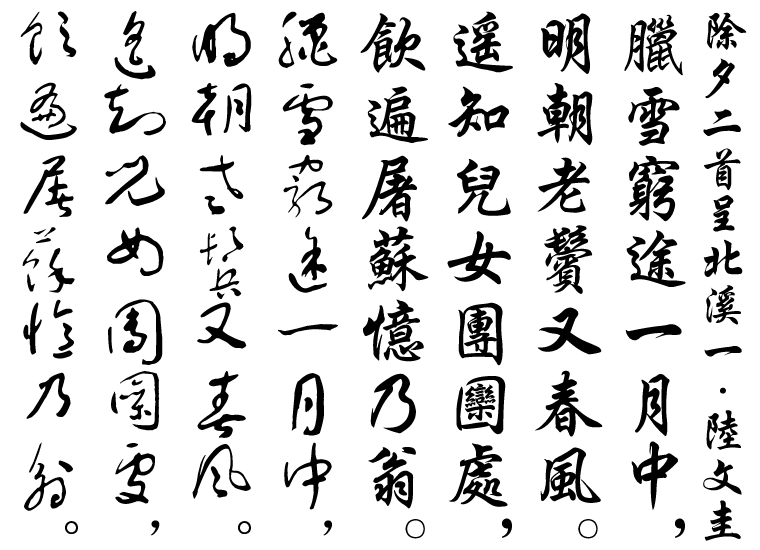 除夕二首呈北溪一·陸文圭
臘雪窮途一月中，
明朝老鬢又春風。
遥知兒女團圞處，
飲遍屠蘇憶乃翁。
臘雪窮途一月中，
明朝老鬢又春風。
遥知兒女團圞處，
飲遍屠蘇憶乃翁。